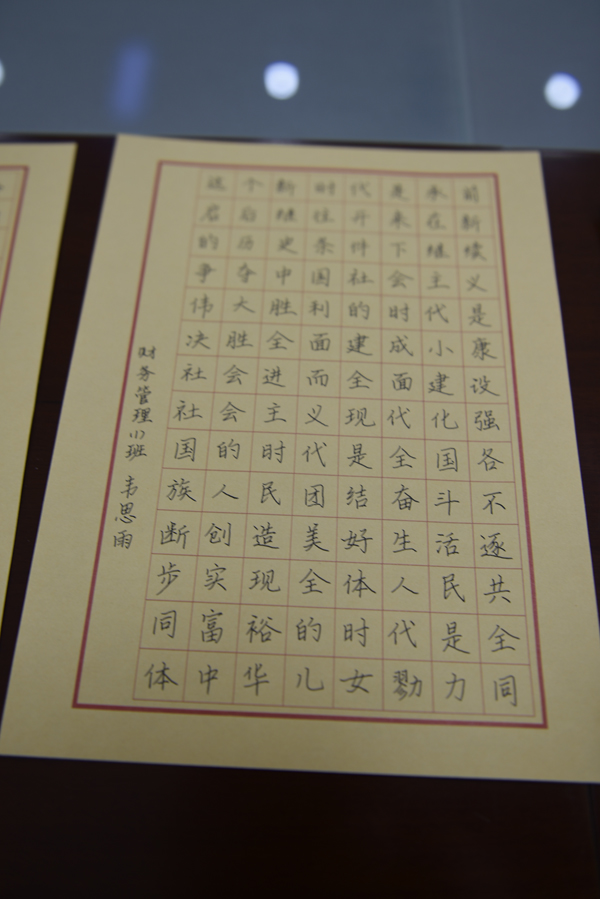 这个新时代是承前
启后继往开来在新
的历史条件下继续
争夺中国社会主义
伟大胜利的时代是
决胜全面建成小康
社会进而全面建设
社会主义现代化强
国的时代是全国各
族人民团结奋斗不
断创造美好生活逐
步实现全体人民共
同富裕的时代是全
体中华儿女勠力同
财务管理(1)班 韦思雨